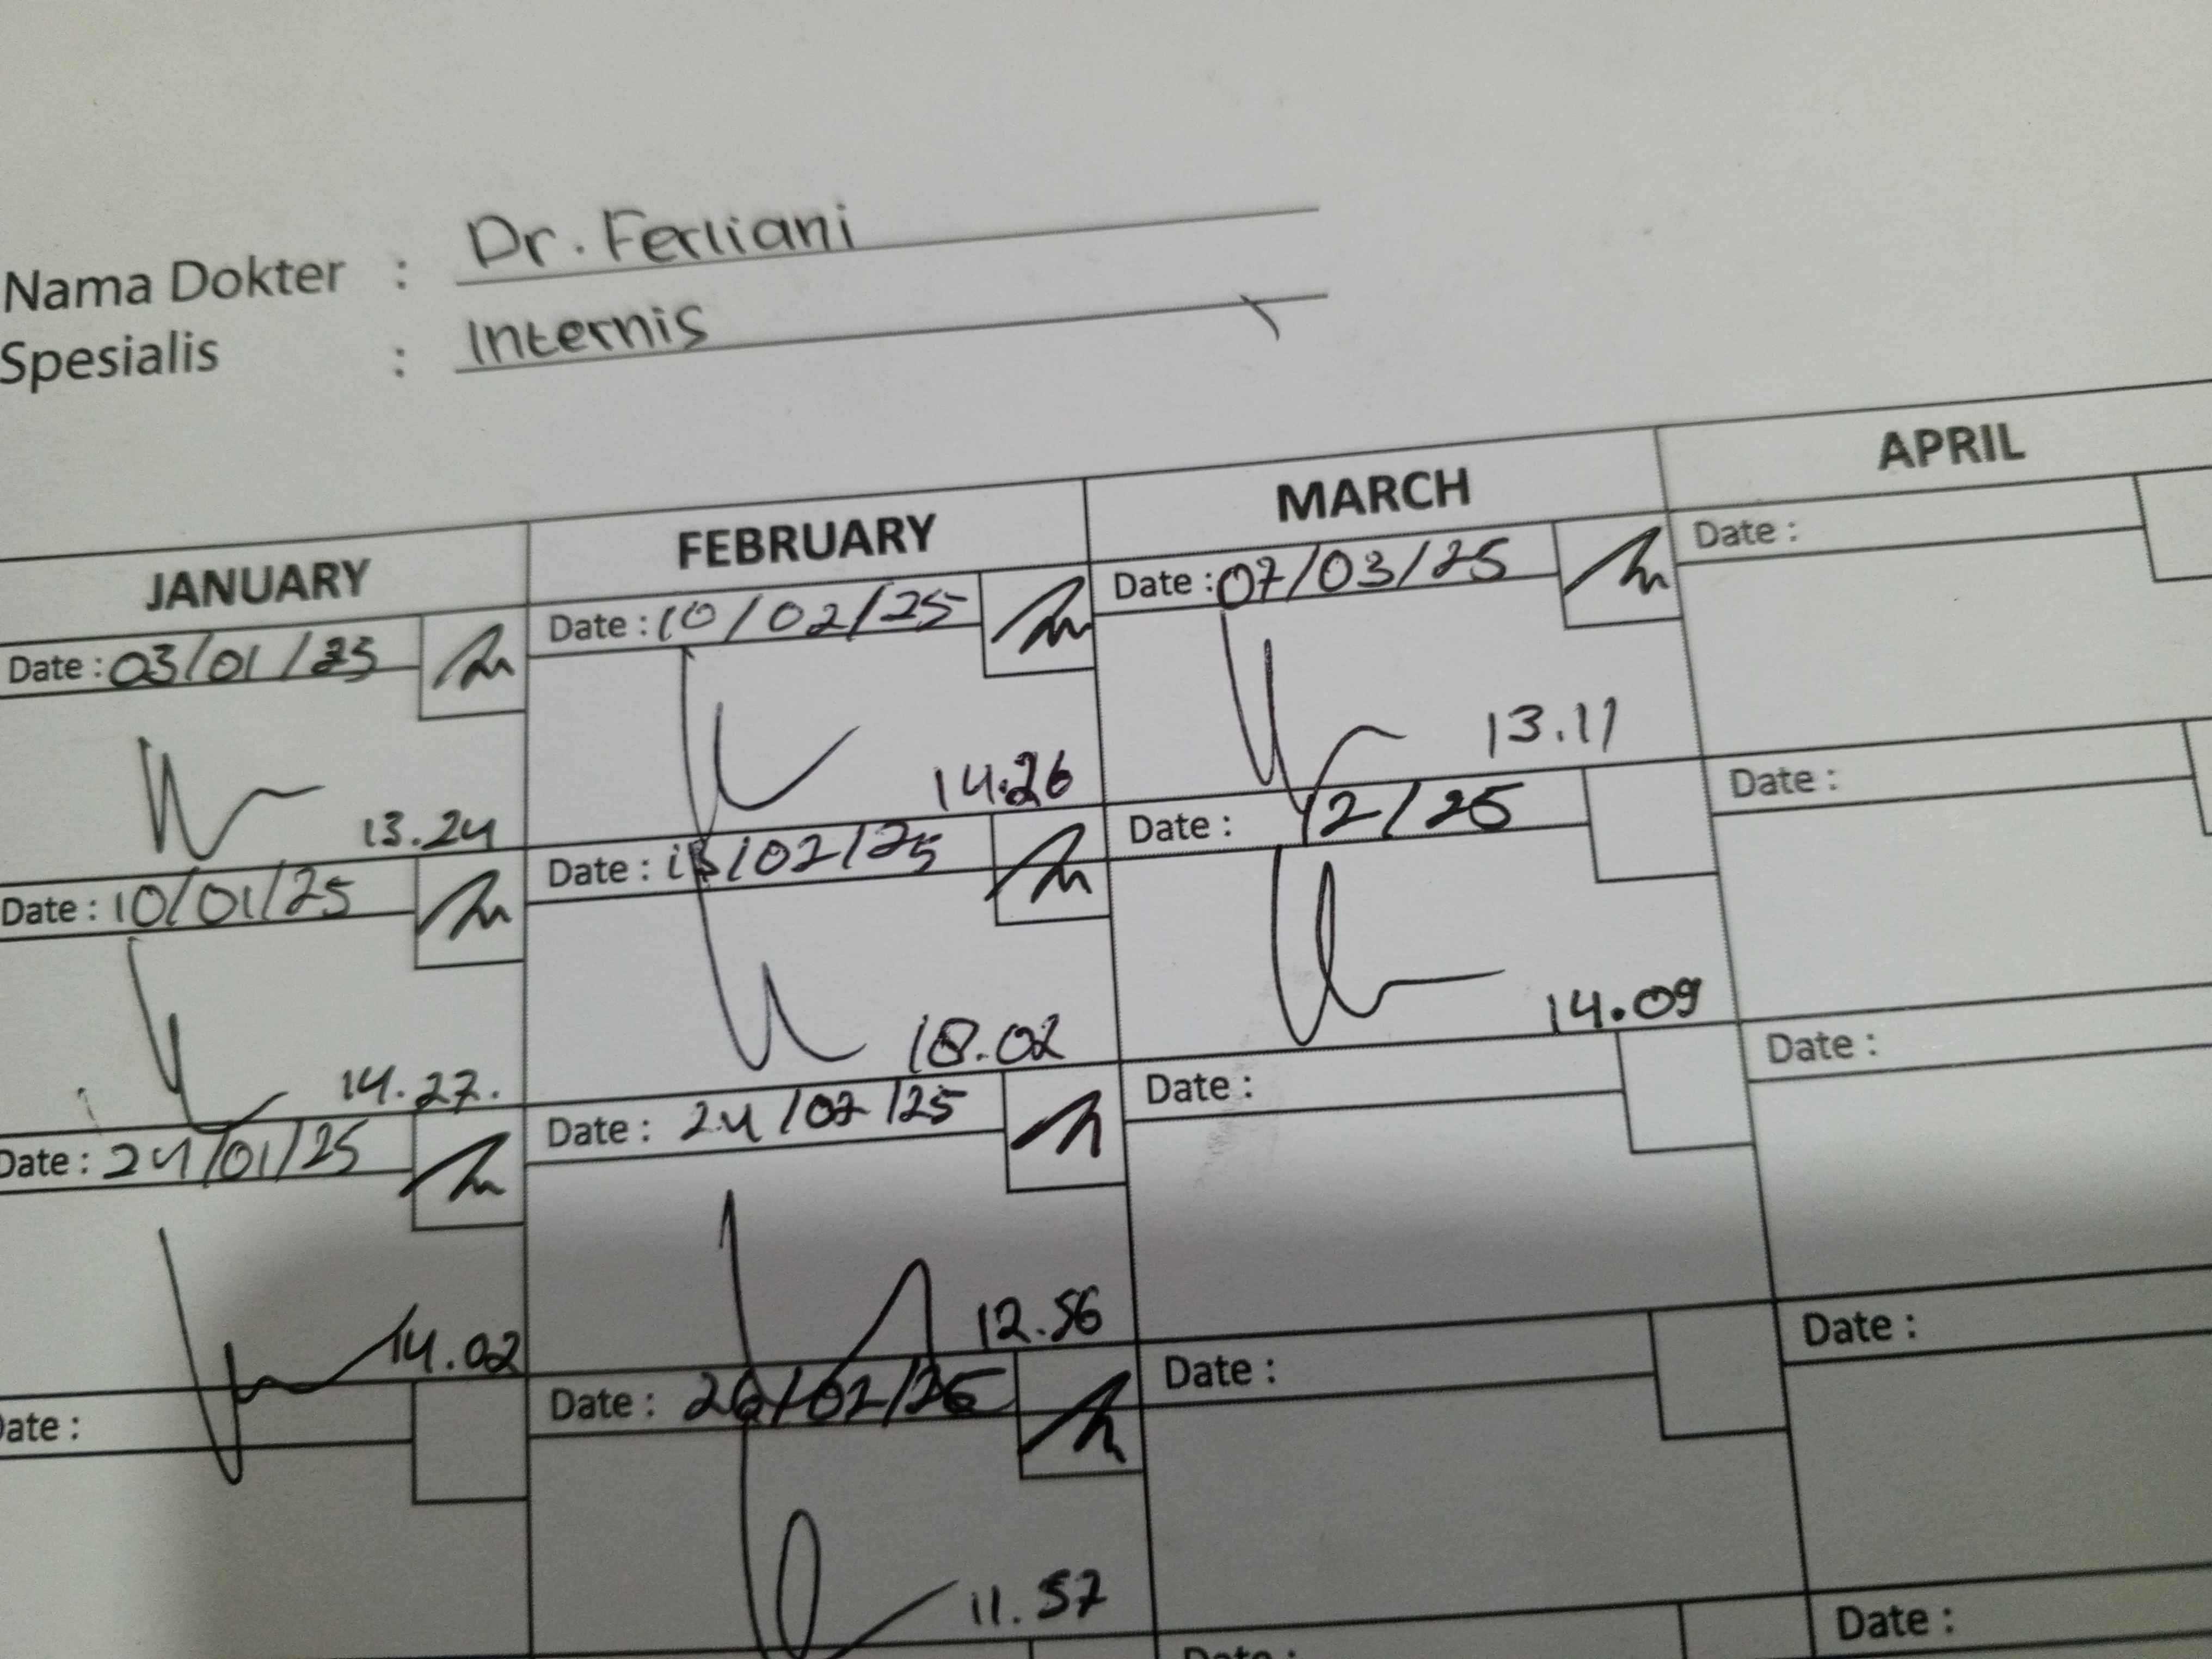 Nama Dokter : Dr. Ferliani
Spesialis : Internis
JANUARY
Date : 03/01/25
13.24
Date : 10/01/25
14.27.
Date : 24/01/25
14.02
Date :
FEBRUARY
Date : 10/02/25
14.26
Date : /02/25
18.02
Date : 24/02/25
12.56
Date : 26/02/25
11.57
MARCH
Date : 07/03/25
13.11
Date : 12/25
14.09
Date :
Date :
Date :
APRIL
Date :
Date :
Date :
Date :
Date :